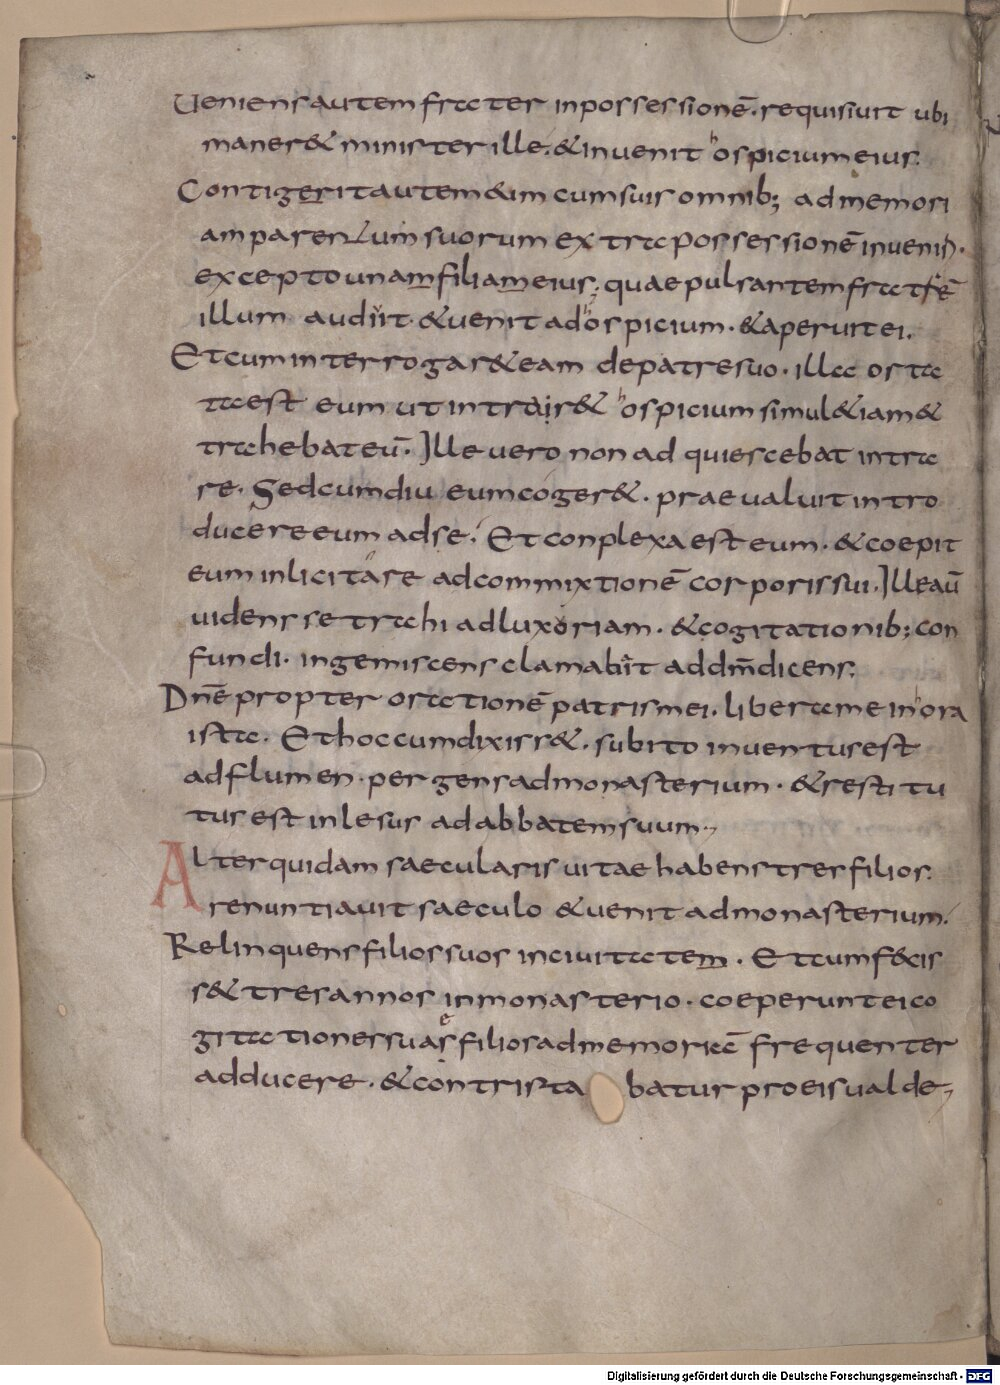 Ueniens autem frater in possessionē. requisiuit ubi
maner& minister ille. & inuenit hospicium eius.
Contigerit autem &im cum suis omnib; ad memori
am parentum suorum extra possessionē inuenir.
excepto unam filiam eius; quae pulsantem fratrē
illum audiit. & uenit ad hospicium. & aperuit ei.
Et cum interrogar& eam de patre suo. illa orta
ta est eum ut intrair& hospicium simul & iam &
trahebat eū. Ille uero non adquiescebat intra
re. Sed cum diu eum coger&. praeualuit intro
ducere eum ad se. Et conplexa est eum. & coepit
eum inlicitare ad commixtionē corporis sui. Ille aū
uidens se trahi ad luxoriam. & cogitationib; con
fundi. ingemiscens clamabit ad dm̄ dicens.
Dnē propter orationē patris mei. libera me in hora
ista. Et hoc cum dixiss&. subito inuentus est
ad flumen. pergens ad monasterium. & restitu
tus est inlesus ad abbatem suum.,
Alter quidam saecularis uitae habens tres filios.
renuntiauit saeculo & uenit ad monasterium.
Relinquens filios suos in ciuitatem. Et cum fecis
s& tres annos in monasterio. coeperunt ei co
gitationes suae filios ad memoriā frequenter
adducere. & contristabatur pro eis ualde,
Digitalisierung gefördert durch die Deutsche Forschungsgemeinschaft - DFG